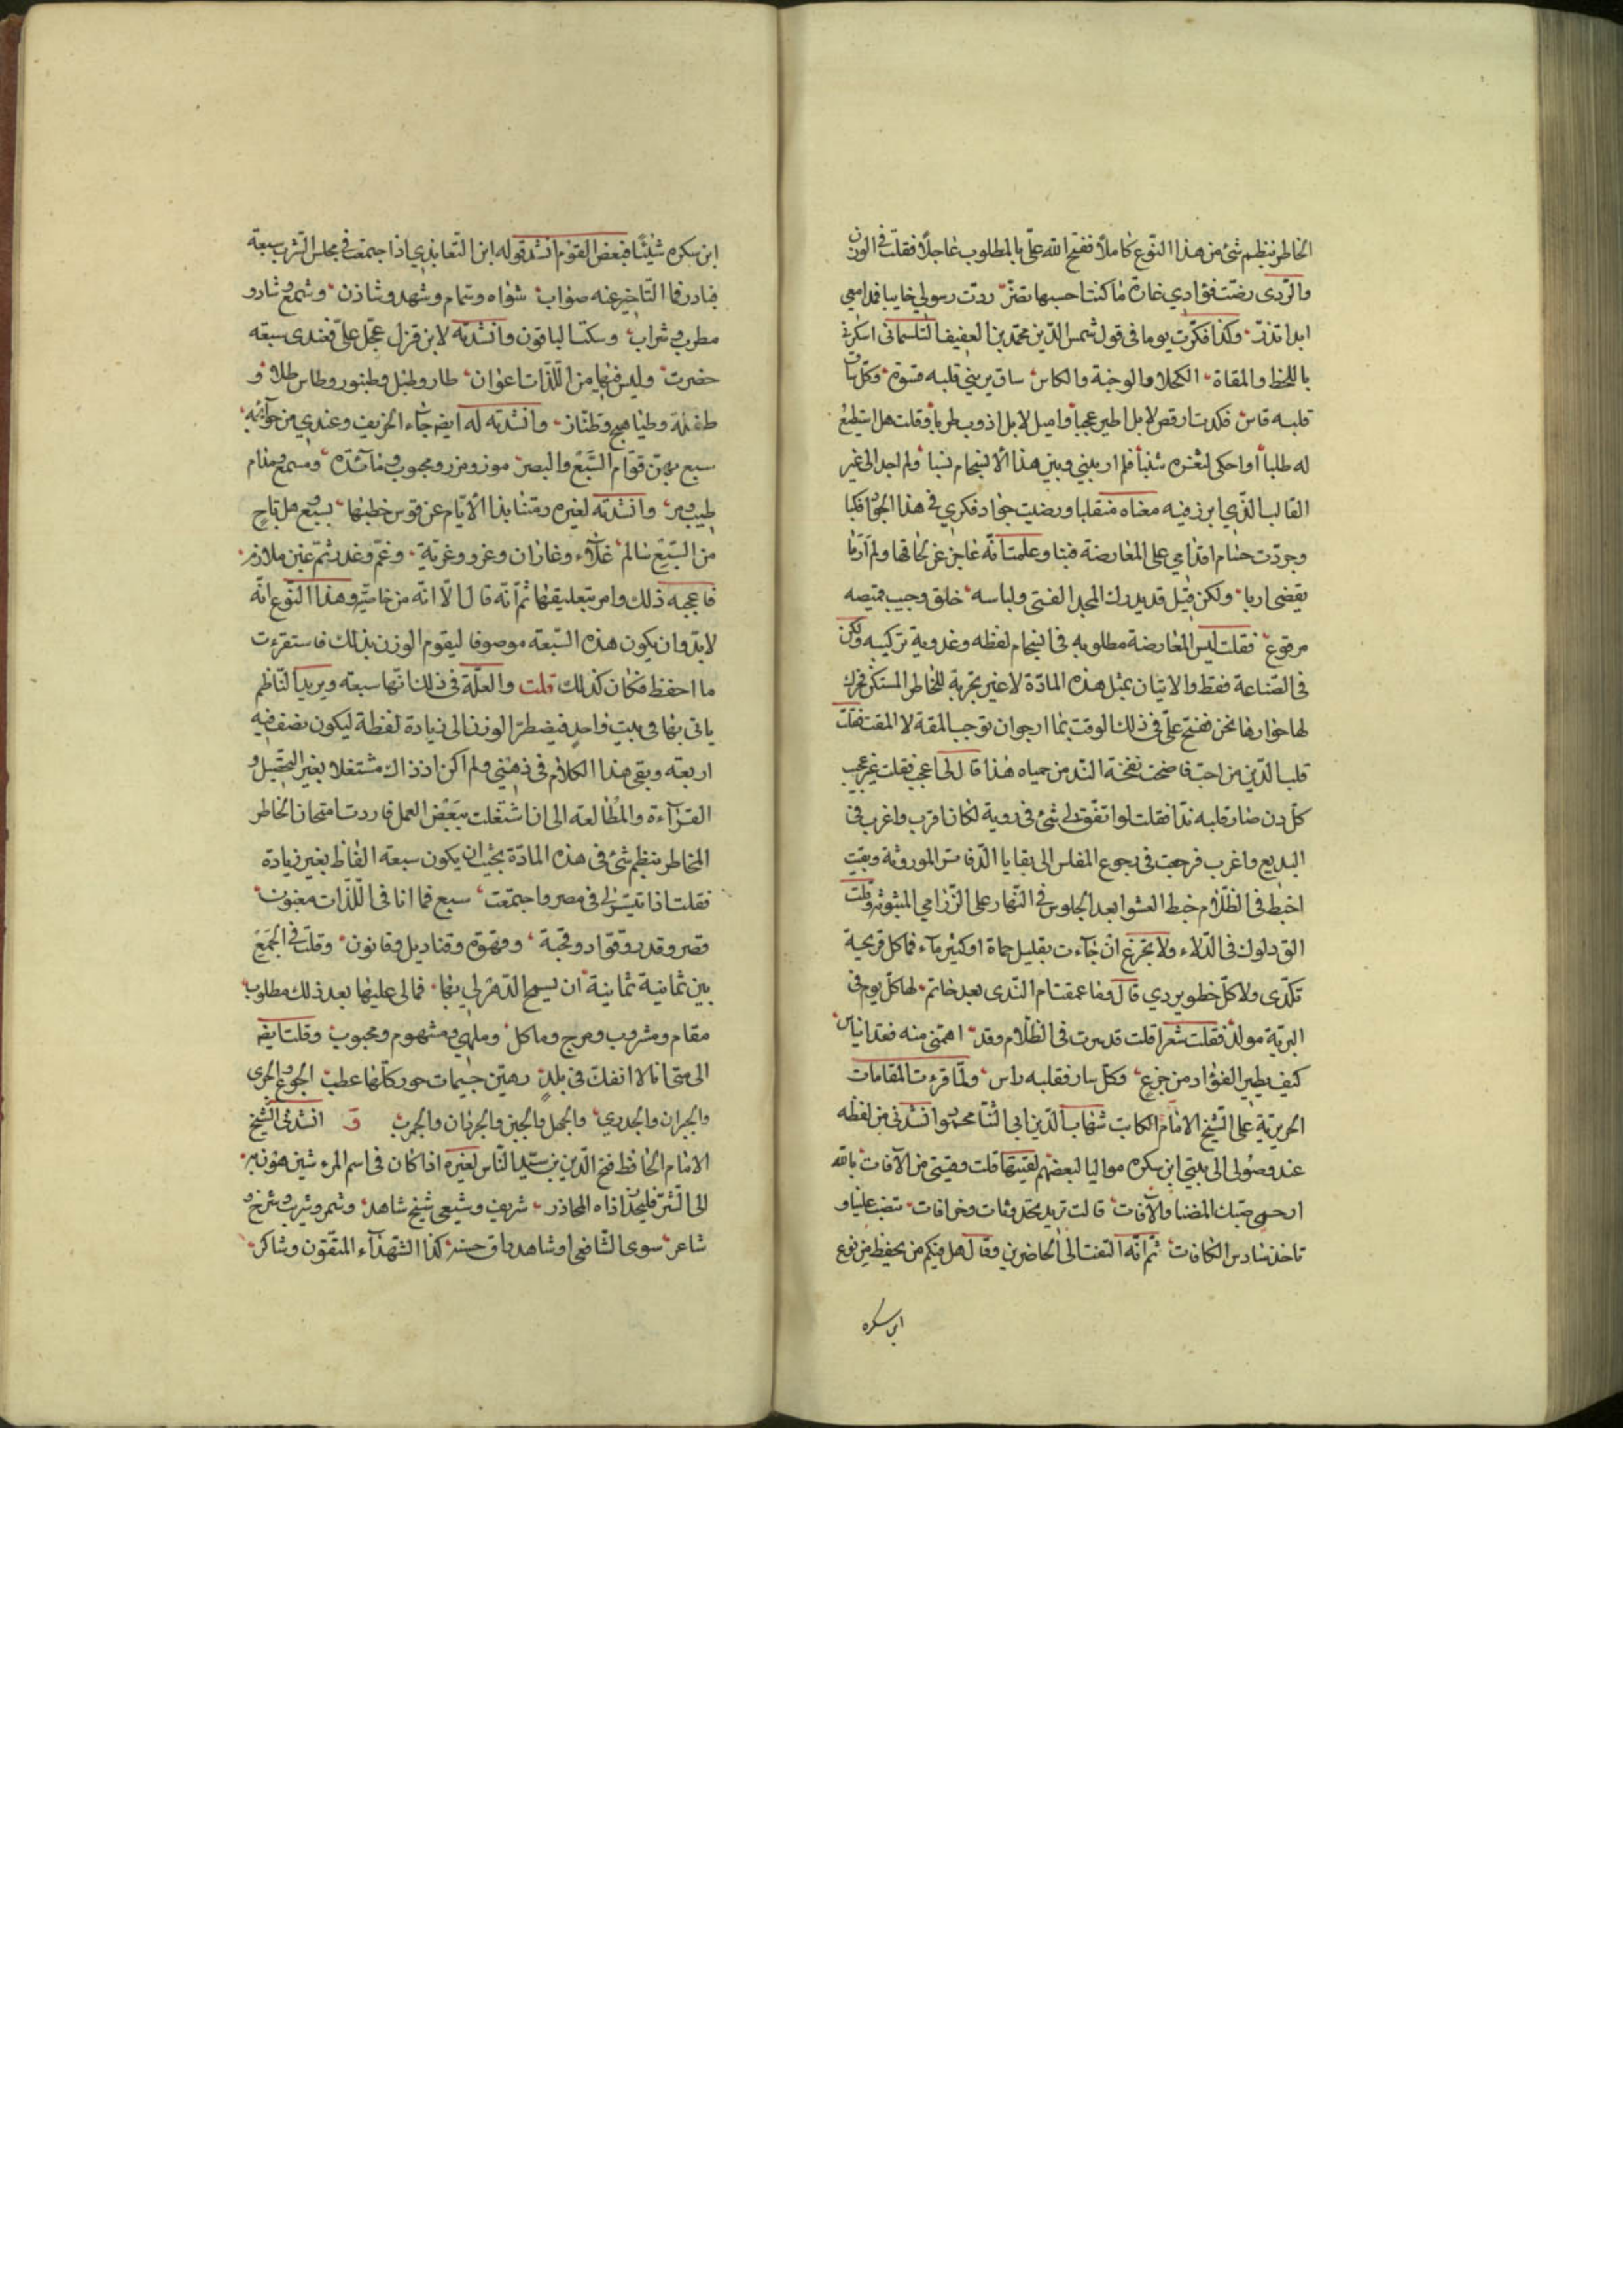 الخاطر بنظم شئ من هذا النوع كاملا ففتح الله علي بالمطلوب عاجلا فقلت في الوزن
والروى رضت فؤادي غادة ما كنت احسبها تضر ردت رسولي خايبا فمدامعي
ابدا تدر وكذا فكرت يوما في قول شمس الدين محمد بن العفيف التلمساني اسكرني
باللحظ والمقلة الكحلا والوجنة والكاس ساق يريني قلبه قسوة وكل ساق
قلبه قاس فكدت ارقص لا بل اطير عجبا واميل لا بل اذوب طربا وقلت هل استطيع
له طلبا او احكى لثغره شنبا فلم ار بيني وبين هذا الانسجام نسبا ولم اجد الى غير
القالب الذي ابرز فيه معناه منقلبا ورضيت جواد فكري في هذا الجو فكبا
وجردت حسام اقدامي على المعارضة فنبا وعلمت انه عاجز عن لحاقها ولم ار ما
يقضى اربا ولكن قيل قد يدرك المجد الفتى ولباسه خلق وجيب قميصه
مرقوع فقلت ليس المعارضة مطلوبه في انسجام لفظه وعذوبة تركيبه ولكن
في الصناعة فقط والاتيان بمثل هذه المادة لا غير تجربة للخاطر المستكن فخرك
لها حوارها نحن ففتح علي في ذلك الوقت بما ارجو ان توجب المقة لا المقت فقلت
قلب الدين من احب فاضحت نفخة الند من حياه هذا قال لي اعجب فقلت غير عجيب
كل دن صار قلبه ندا فقلت لو اتفق لي شئ في روية لكان اقرب واغرب في
البديع واغرب فرجعت في رجوع المفلس الى بقايا الدفاتر الموروثة وبقيت
اخبط في الظلام خبط العشوا بعد الجلوس في النهار على الزرامي المبثوثة وقلت
الق دلوك في الدلاء ولا تجزع ان جاءت بقليل حماة او كثير ماء فما كل قريحة
تكدى ولا كل خطو يردي قال وما عمقت ام الندى بعد خاتم لها كل يوم في
البرية مولد فقلت شعرا قلت قد سرت في الظلام وقد اهمتني منه فعد اناس
كيف يطير الفؤاد من جزع وكل سار فقلبه راس ولما قرءت المقامات
الحريرية على الشيخ الامام الكاتب شهاب الدين ابي الثنا محمود انشدني من لفظه
عند وصولي الى بيتي ابن سكره مواليا لبعضهم لقيتها قلت وقيتي من الآفات بالله
ارحمى صبك المضنا والآفات قالت تريد بحدوثات وخرافات تنصب علينا و
تاخذ سادس الكافات ثم انه التفت الى الحاضرين وقال هل فيكم من يحفظ من نوع
ابن سكره
ابن سكره شيئا فبعض القوم انشد قوله ابن التعاويذي اذا اجتمعت في مجلس الشرب سبعة
فبادر فما التاخير عنه صواب شواء وشمام وشهد وشادن وشمع وشاد و
مطرب وشراب وسكت الباقون وانشدته لابن قزل عجل علي فعندى سبعة
حضرت وليس فيها من اللذات اعوان طار وطبل وطنبور وطاس طلا و
طفلة وطباهيج وطناز وانشدته له ايضا جاء الخريف وعندي من حوائجه
سبع بهن قوام السمع والبصر موز ومزر ومحبوب ومائدة ومسمع ومدام
طيب ومر وانشدته لغيره رمتنا يد الايام عن قوس خطبها بسبع هل ناج
من السبع سالم غلاء وغازان وغزو وغربة وغم وغدر ثم غبن ملازم
فاعجبه ذلك وامر بتعليقها ثم انه قال الا انه من خاصية هذا النوع انه
لا بد وان يكون هذه السبعة موصوفا ليقوم الوزن بذلك فاستقرءت
ما احفظ فكان كذلك قلت والعلة في ذلك انها سبعة ويريد الناظم
ياتي بها في بيت واحد فيضطر الوزن الى زيادة لفظة ليكون نصفيه
اربعة وبقي هذا الكلام في ذهني ولم اكن اذ ذاك مشتغلا بغير التحصيل و
القراءة والمطالعة الى ان اشتغلت ببعض العمل فاردت امتحان الخاطر
المخاطر بنظم شئ في هذه المادة بحيث ان يكون سبعة الفاظ بغير زيادة
فقلت اذا تيسر لي في مصر واجتمعت سبع فما انا في اللذات مغبون
قصر وقدر وقواد وقحبة وقهوة وقناديل وقانون وقلت في الجمع
بين ثمانية ثمانية ان يسمح الدهر لي بها فمالي عليها بعد ذلك مطلوب
مقام ومشروب ومزج وماكل وملهى ومشموم ومحبوب وقلت ايضا
الى متى انا لا انفك في بلد رهين جيمات جور كلها عطب الجوع والجرى
والجيران والجدري والجهل والجبن والجرذان والجرب ق انشدني الشيخ
الامام الحافظ فتح الدين بن سيد الناس لغيره اذا كان في اسم المرء شين فهو نبز
الى الشر فليحذر اذاه المحاذر شريف وشيعي شيخ شاهد وشمر وشرب شرخ و
شاعر سوى الشافعي او شاهد راق حسنه كذا الشهداء المتقون وشاكر